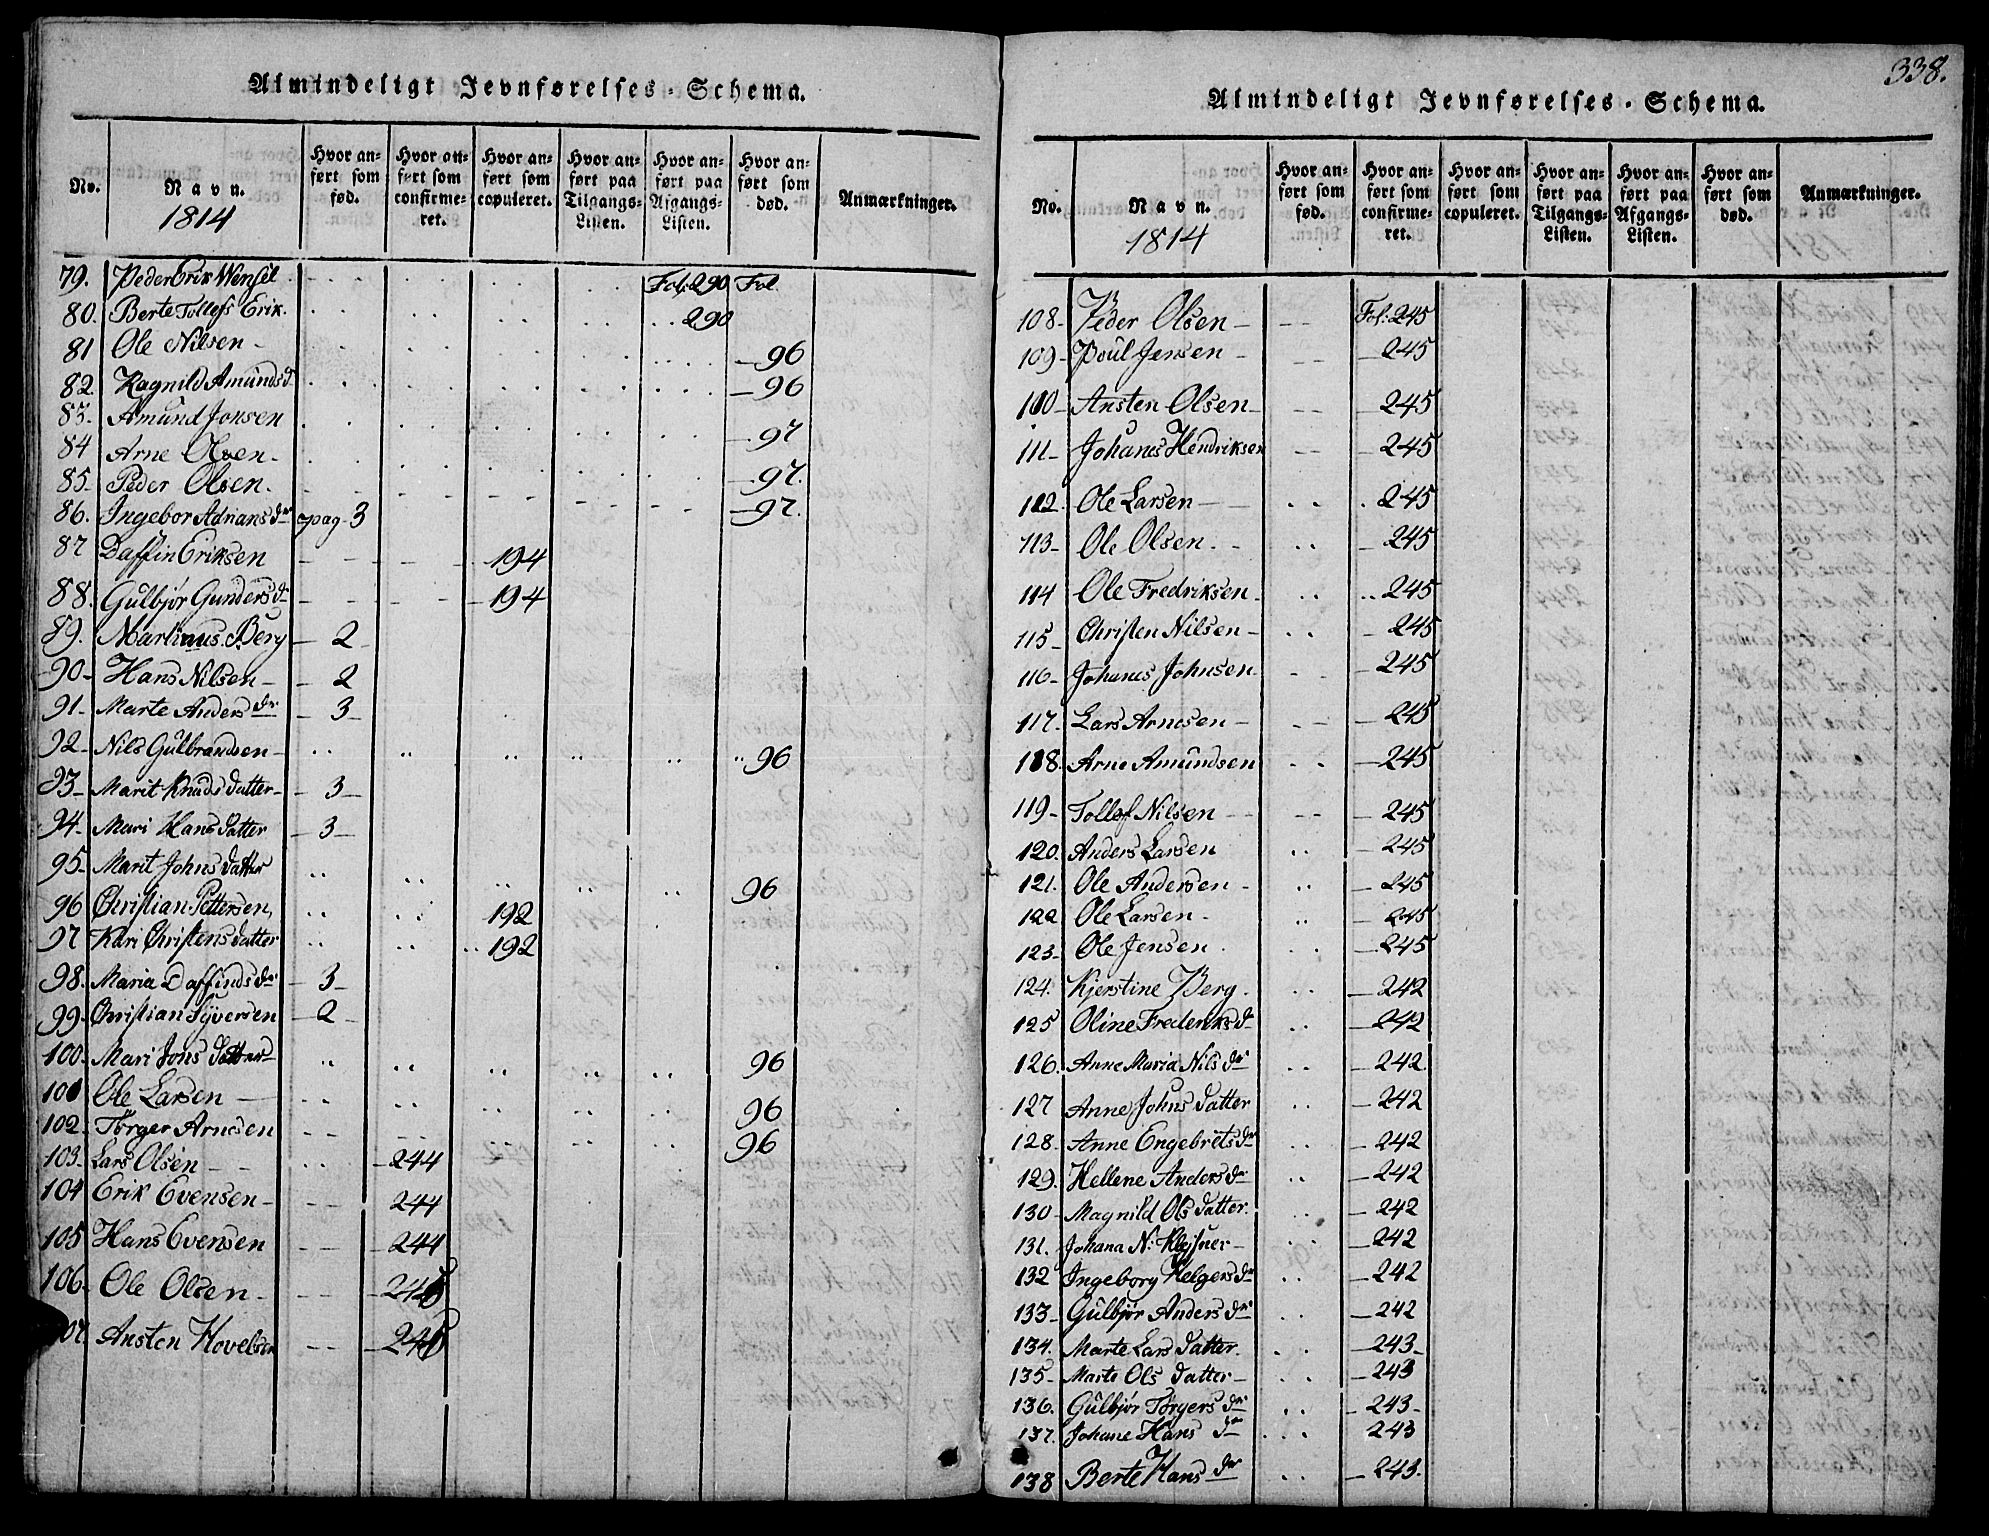 Almindeligt Jevnførelses-Schema.
No. Navn. 1814 Hvor anført som fød. Hvor anført som confirmeret. Hvor anført som copuleret. Hvor anført paa Tilgangs-Listen. Hvor anført paa Afgangs-Listen. Hvor anført som død. Anmærkninger.
79. Peder Erik Wensel Fol. 290 Fol.
80. Berte Tollefs Erik. 290
81 Ole Nilsen - 96
82. Ragnild Amunds d. - 96
83. Amund Jonsen - 97
84 Arne Olsen - 97.
85. Peder Olsen. - 97.
86. Ingebor Adrians dr pag. 3
87 Daffin Eriksen - 194
88. Gulbjør Gunders dr - 194
89. Martinus Berg - 2 -
90- Hans Nilsen - 2
91- Marte Anders dr - 3 -
92- Nils Gulbrandsen - 96
93- Marit Knuds datter - 3 -
94- Mari Hans datter - 3 -
95- Marit Johns datter 96
96 Christian Pettersen, 192
97 Kari Christens datter 192
98. Maria Daffinds dr - 3 -
99. Christian Syversen - 2 -
100. Mari Jons datter 96
101 Ole Larsen - 96
102. Tørger Arnesen 96
103- Lars Olsen - 244
104 Erik Evensen - 244
105 Hans Evensen - 244
106- Ole Olsen - 245
107. Ansten Hovelsen - 245
338.
Almindeligt Jevnførelses-Schema.
No. Navn. 1814 Hvor anført som fød. Hvor anført som confirmeret. Hvor anført som copuleret. Hvor anført paa Tilgangs-Listen. Hvor anført paa Afgangs-Listen. Hvor anført som død. Anmærkninger.
108- Peder Olsen - Fol: 245
109- Poul Jensen - 245
110- Ansten Olsen - 245
111- Johanes Hendriksen - 245
112. Ole Larsen - 245
113- Ole Olsen. - 245
114 Ole Fredriksen. 245
115- Christen Nilsen - 245
116- Johanes Johnsen - 245
117- Lars Arnesen - 245
118. Arne Amundsen - 245
119- Tollef Nilsen - 245
120. Anders Larsen - 245
121. Ole Andersen - 245
122 Ole Larsen - 245
123- Ole Jensen - 245
124. Kjerstine Berg. - 242
125 Oline Frederiks dr - 242
126. Anne Maria Nils dr - 242
127 Anne Johns datter - 242
128- Anne Engebrets dr - 242
129. Hellene Anders dr - 242
130- Magnild Ols datter. - 242
131. Johana N: Klejsner - 242
132 Ingeborg Helgers dr - 242
133- Gulbjør Anders dr - 242
134. Marte Lars datter. - 243 -
135- Marte Ols datter - 243
136. Gulbjør Tørgers dr - 243 -
137. Johane Hans dr 243
138 Berte Hans dr - 243.